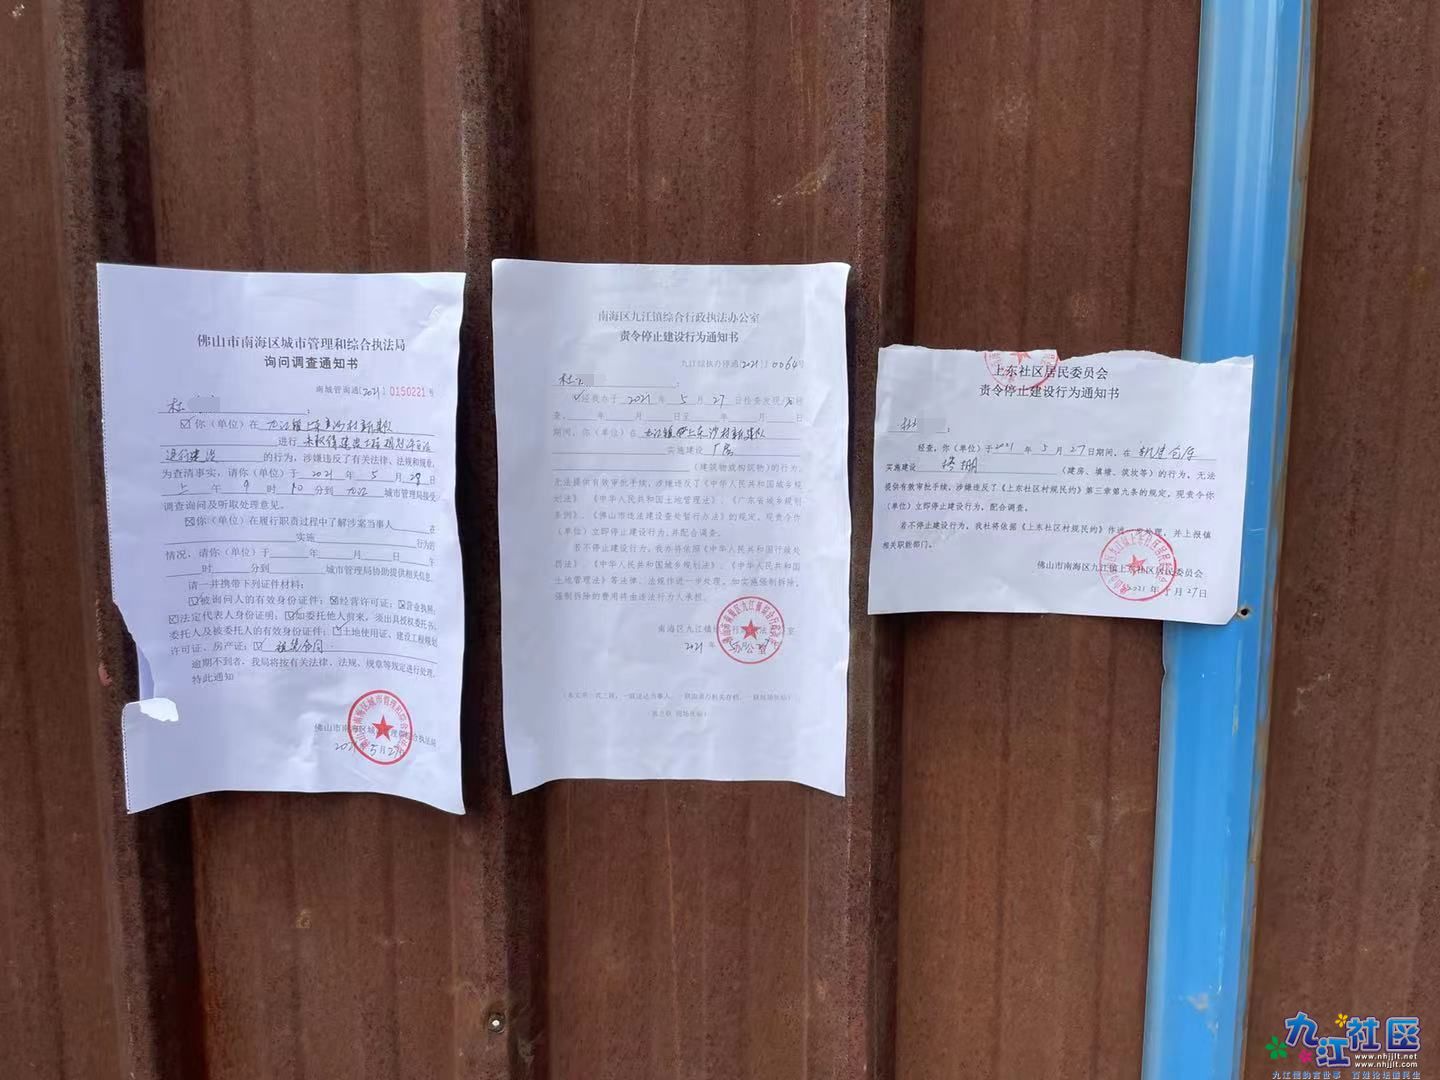 佛山市南海区城市管理和综合执法局
询问调查通知书
南城管询通[2021] 0150221号
杜
你（单位）在
进行未取得建设工程规划许可证
进行建设 的行为，涉嫌违反了有关法律、法规和规章，
为查清事实，请你（单位）于 2021 年 5 月 28 日
上 午 9 时 10 分到 九江 城市管理局接受
调查询问及听取处理意见。
你（单位）在履行职责过程中了解涉案当事人 在
实施 行为的
情况，请你（单位）于 年 月 日 午
时 分到 城市管理局协助提供相关信息。
请一并携带下列证件材料：
被询问人的有效身份证件；经营许可证；营业执照；
法定代表人身份证明；如委托他人前来，须出具授权委托书、
委托人及被委托人的有效身份证件；土地使用证、建设工程规划
许可证、房产证；租赁合同
逾期不到者，我局将按有关法律、法规、规章等规定进行处理。
特此通知
佛山市南海区城市管理和综合执法局
2021年5月27日
南海区九江镇综合行政执法办公室
责令停止建设行为通知书
九江综执办停通[2021] 0064号
杜
经我办于 2021 年 5 月 27 日检查发现/经检
查， 年 月 日至 年 月 日
期间，你（单位）在 九江镇上东沙村新建队
实施建设 厂房
（建筑物或构筑物）的行为，
无法提供有效审批手续，涉嫌违反了《中华人民共和国城乡规
划法》、《中华人民共和国土地管理法》、《广东省城乡规划
条例》、《佛山市违法建设查处暂行办法》的规定，现责令你
（单位）立即停止建设行为，并配合调查。
若不停止建设行为，我办将依照《中华人民共和国行政处
罚法》、《中华人民共和国城乡规划法》、《中华人民共和国
土地管理法》等法律、法规作进一步处理，如实施强制拆除，
强制拆除的费用将由违法行为人承担。
南海区九江镇综合行政执法办公室
2021 年 5 月 27 日
（本文书一式三联，一联送达当事人，一联由承办机关存档，一联现场张贴）
（第三联 现场张贴）
上东社区居民委员会
责令停止建设行为通知书
杜
经查，你（单位）于2021 年 5 月 27日期间，在
实施建设 搭棚 （建房、填塘、筑坎等）的行为，无法
提供有效审批手续，涉嫌违反了《上东社区村规民约》第三章第九条的规定，现责令你
（单位）立即停止建设行为，配合调查。
若不停止建设行为，我社将依据《上东社区村规民约》作进一步处理，并上报镇
相关职能部门。
佛山市南海区九江镇上东社区居民委员会
2021年 5 月27日
九江社区
www.nhjjlt.net
www.nhjjlt.com
九江儒韵言世事 百姓论坛蕴民生